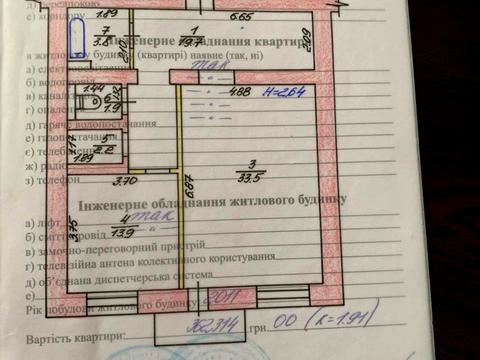 д) передпокою
е) коридору
1.89
6.65
7
3.8
1
19.7
2.02
2.09
Інженерне обладнання квартири
в житловому будинку (квартирі) наявне (так, ні)
а) електроосвітлення
так
б) водопровід
4.88
H=2.64
1.44
6
1.9
в) каналізація
г) опалення
д) гаряче водопостачання
е) газопостачання
1.17
5
2.2
1.89
є) телебачення
ж) радіо
з) телефон
3.70
6.87
3
33.5
Інженерне обладнання житлового будинку
а) ліфт
4
13.9
так
3.75
б) сміттєпровід
в) замочно-переговорний пристрій
г) телевізійна антена колективного користування
д) об’єднана диспетчерська система
е)
Рік побудови житлового будинку 2011
Вартість квартири: 32.314 грн. 00 (к=1.91)